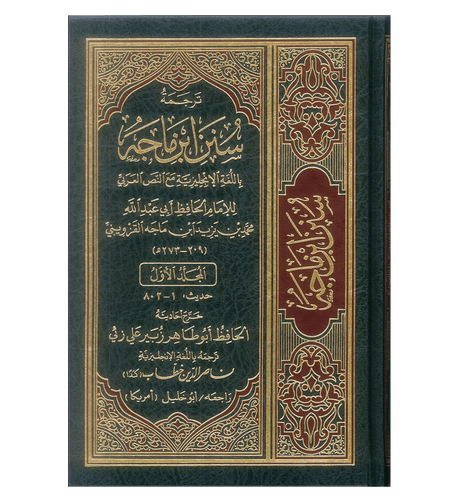 ترجمة
سنن ابن ماجه
باللغة الإنجليزية مع النص العربي
للإمام الحافظ أبي عبد الله
محمد بن يزيد ابن ماجه القزويني
(٢٠٩-٢٧٣ه)
المجلد الأول
حديث: ١-٨٠٢
خرج أحاديثه
الحافظ أبو طاهر زبير علي زئي
ترجمه باللغة الإنجليزية
ناصر الدين خطاب (كندا)
راجعه/ أبو خليل (أمريكا)
سنن ابن ماجه